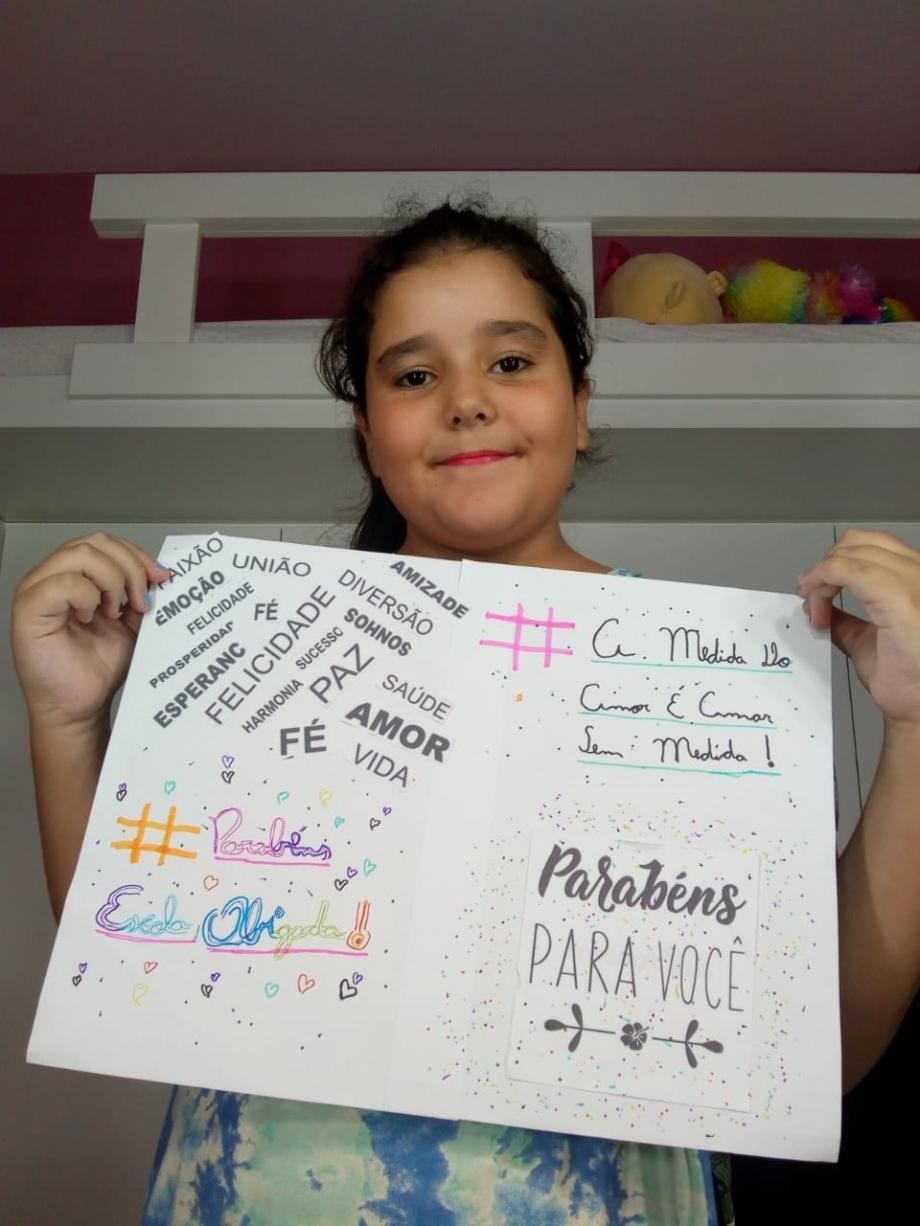 PAIXÃO
UNIÃO
EMOÇÃO
FELICIDADE
FÉ
PROSPERIDAD
ESPERANC
FELICIDADE
HARMONIA
SUCESSO
DIVERSÃO
AMIZADE
SOHNOS
PAZ
SAÚDE
AMOR
FÉ
VIDA
# Parabéns
Escola Obrigada!
# A Medida Do
Amor É Amar
Sem Medida!
Parabéns
PARA VOCÊ